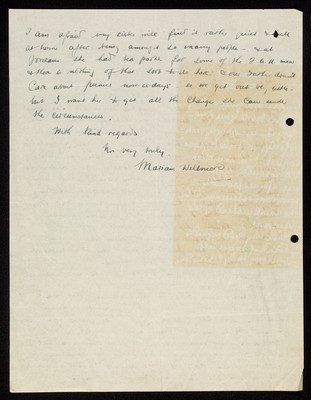 I am afraid my sister will find it rather quiet & dull
at home after being amongst so many people - & at
Jordans she had tea parties for some of the F.A.U. men
& there is nothing of that sort to do here & our Mother doesn't
Care about pictures now-a-days - so we get out very little -
but I want her to get all the change she can under
the circumstances.
With kind regards
Yrs. very truly
Marian Wellmore